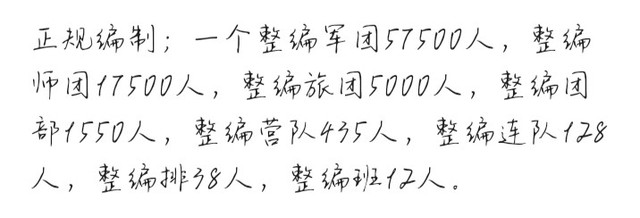 正规编制；一个整编军团57500人，整编
师团17500人，整编旅团5000人，整编团
部1550人，整编营队435人，整编连队128
人，整编排38人，整编班12人。